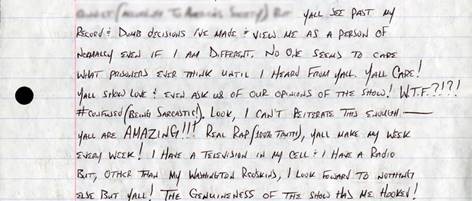 Yall see past my
Record & Dumb decisions I've made & view me as a person of
normally even if I am different. No one seems to care
what prisoners ever think until I heard from yall. Yall care!
Yall show love & even ask us of our opinions of the show! W.T.F?!?!
#confused (Being Sarcastic!). Look, I can't reiterate this enough —
yall are AMAZING!!! Real Rap (100% Truth), yall make my week
every week! I have a television in my cell & I have a radio
but, other than my Washington Redskins, I look foward to nothing
else but yall! The genuineness of the show has me hooked!